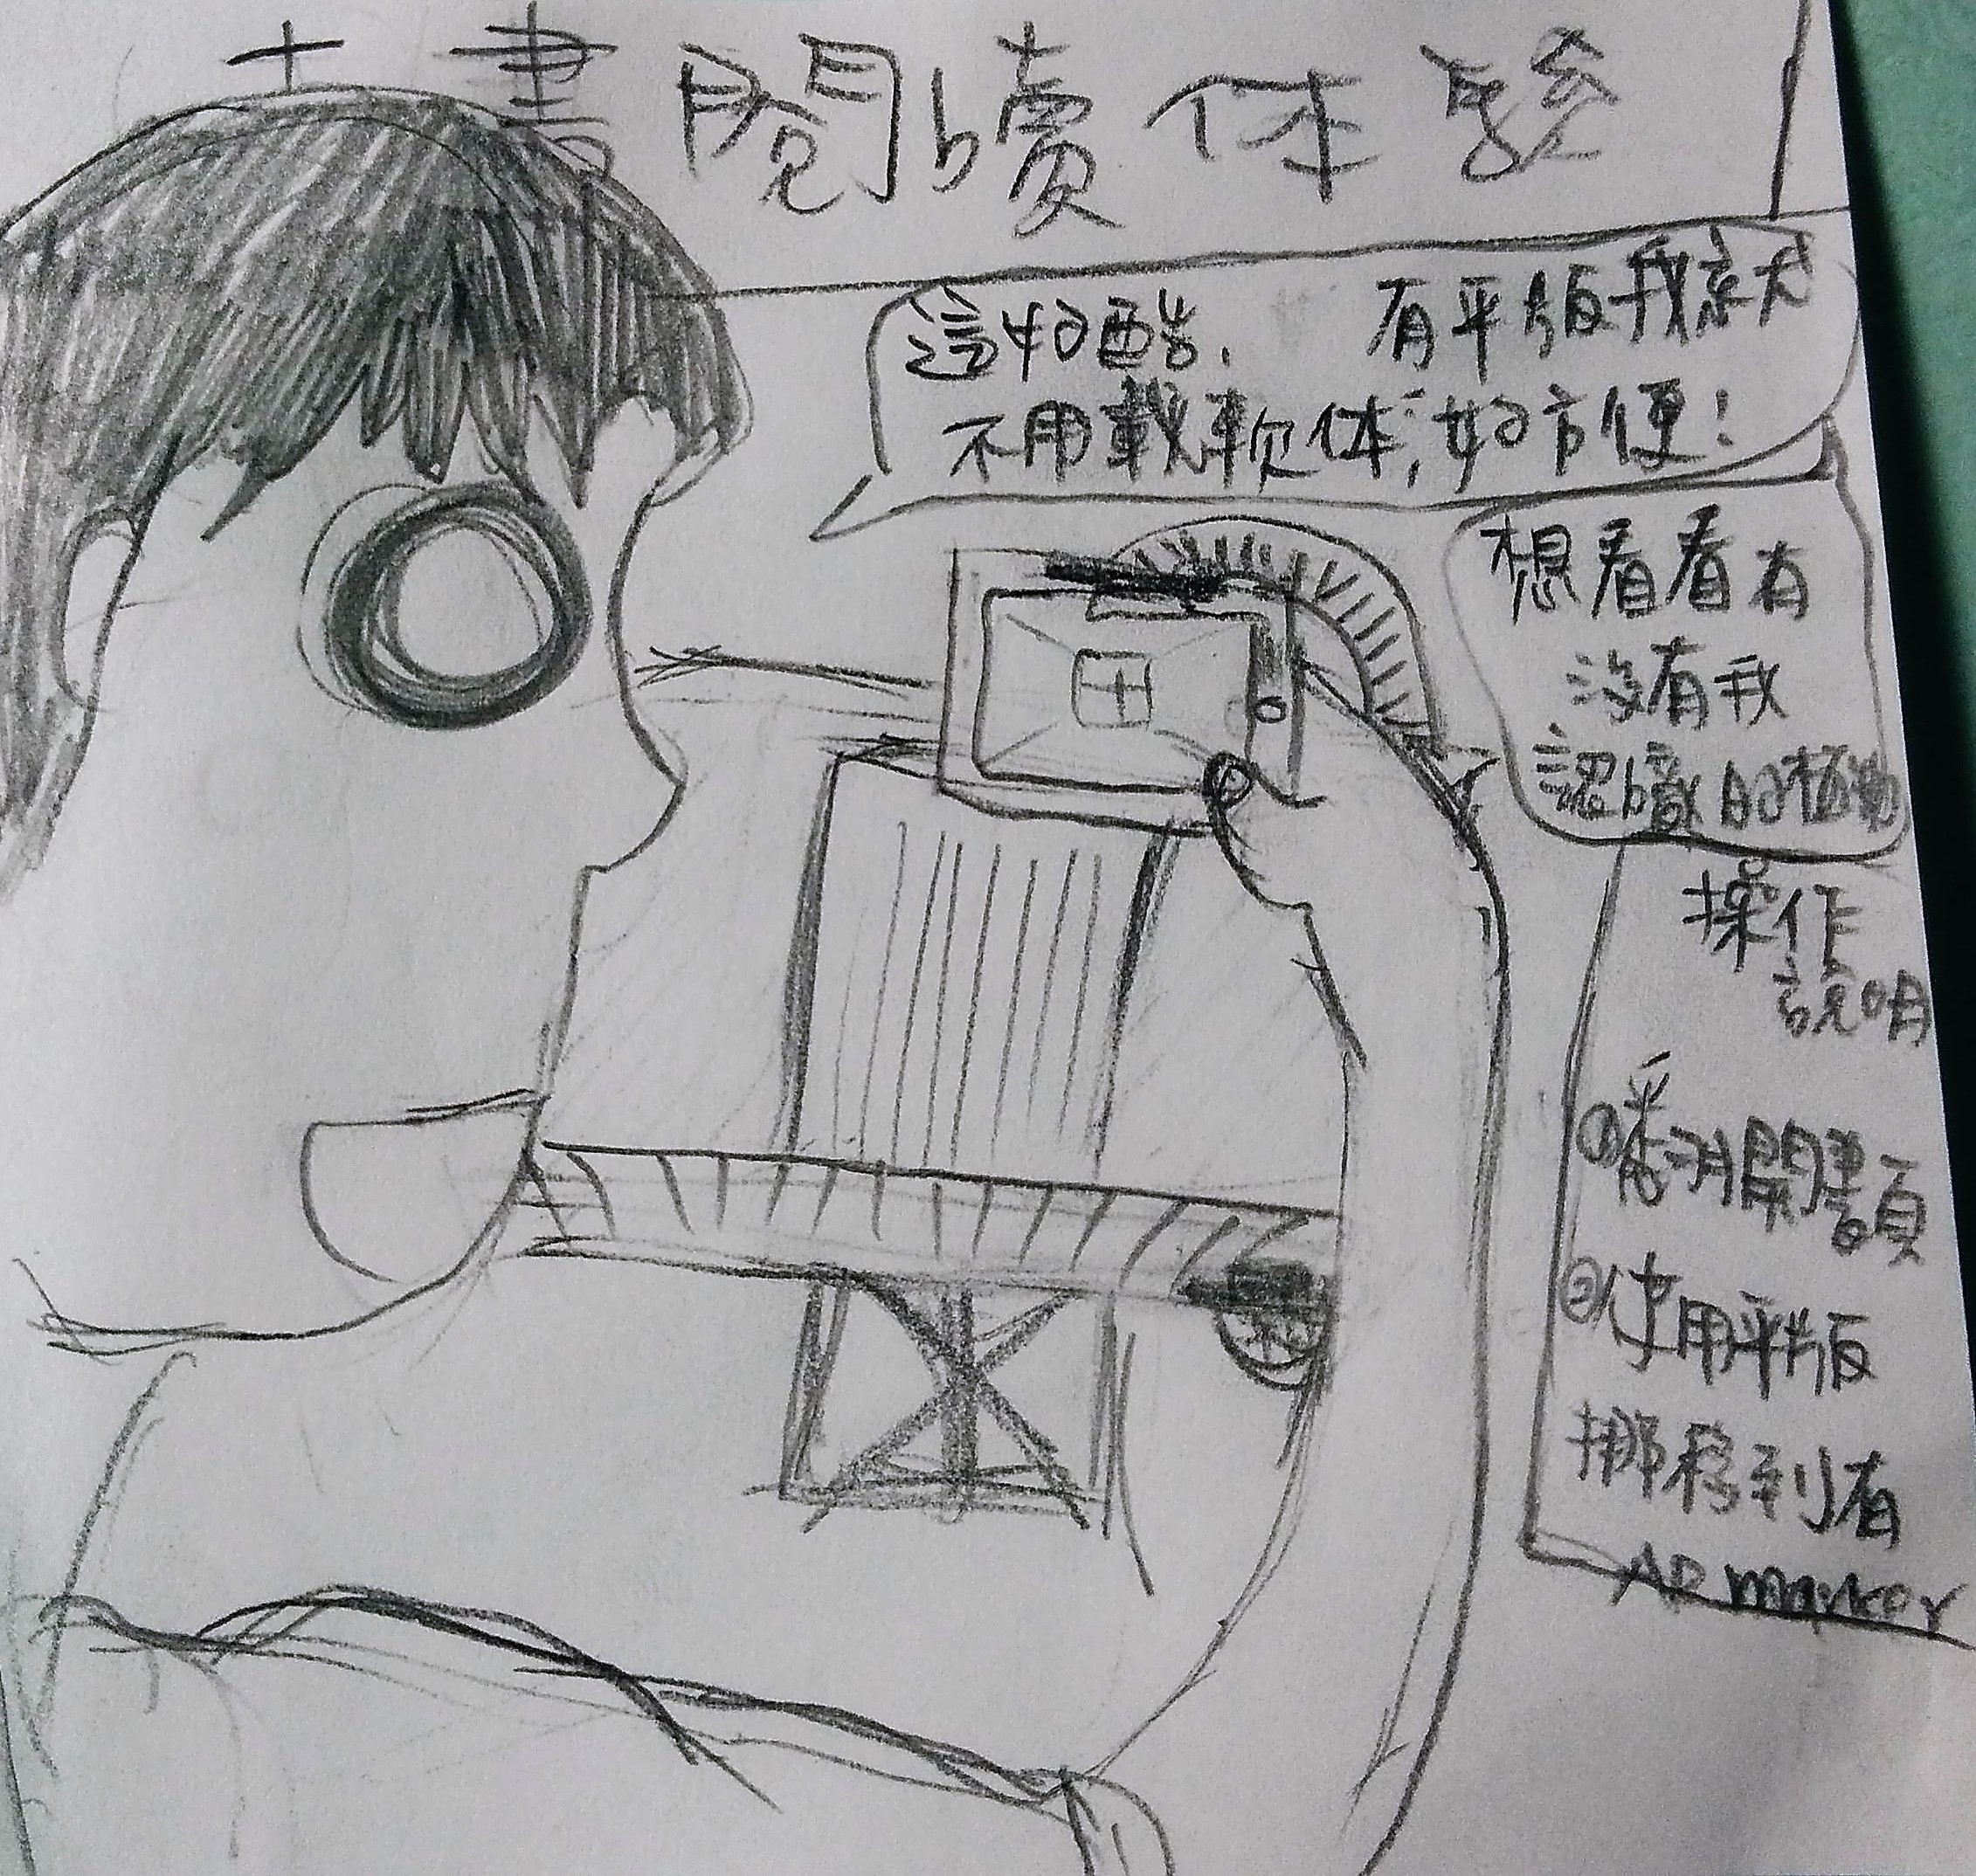 十書閱讀体驗
這好酷, 有平版我就
不用載軟体,好方便!
想看看有
沒有我
認識的植物
操作
說明
①番羽開書頁
②使用平版
挪移到有
AR marker